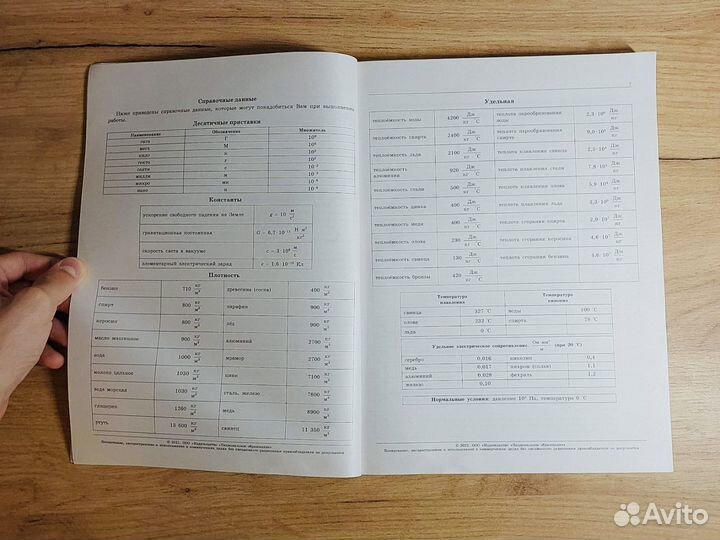 Справочные данные
Ниже приведены справочные данные, которые могут понадобиться Вам при выполнении
работы.
Десятичные приставки
Наименование Обозначение Множитель
гига Г 10⁹
мега М 10⁶
кило к 10³
гекто г 10²
санти с 10⁻²
милли м 10⁻³
микро мк 10⁻⁶
нано н 10⁻⁹
Константы
ускорение свободного падения на Земле g = 10 м/с²
гравитационная постоянная G = 6,7·10⁻¹¹ Н·м²/кг²
скорость света в вакууме c = 3·10⁸ м/с
элементарный электрический заряд e = 1,6·10⁻¹⁹ Кл
Плотность
бензин 710 кг/м³ древесина (сосна) 400 кг/м³
спирт 800 кг/м³ парафин 900 кг/м³
керосин 800 кг/м³ лёд 900 кг/м³
масло машинное 900 кг/м³ алюминий 2700 кг/м³
вода 1000 кг/м³ мрамор 2700 кг/м³
молоко цельное 1030 кг/м³ цинк 7100 кг/м³
вода морская 1030 кг/м³ сталь, железо 7800 кг/м³
глицерин 1260 кг/м³ медь 8900 кг/м³
ртуть 13 600 кг/м³ свинец 11 350 кг/м³
Удельная
теплоёмкость воды 4200 Дж/кг·°С теплота парообразования воды 2,3·10⁶ Дж/кг
теплоёмкость спирта 2400 Дж/кг·°С теплота парообразования спирта 9,0·10⁵ Дж/кг
теплоёмкость льда 2100 Дж/кг·°С теплота плавления свинца Дж/кг
теплоёмкость алюминия 920 Дж/кг·°С теплота плавления стали Дж/кг
теплоёмкость стали 500 Дж/кг·°С теплота плавления олова Дж/кг
теплоёмкость цинка 400 Дж/кг·°С теплота плавления льда Дж/кг
теплоёмкость меди 400 Дж/кг·°С теплота сгорания спирта Дж/кг
теплоёмкость олова 230 Дж/кг·°С теплота сгорания керосина 4,6·10⁷ Дж/кг
теплоёмкость свинца 130 Дж/кг·°С теплота сгорания бензина 4,6·10⁷ Дж/кг
теплоёмкость бронзы 420 Дж/кг·°С
Температура плавления Температура кипения
свинца 327 °С воды 100 °С
олова 232 °С спирта 78 °С
льда 0 °С
Удельное электрическое сопротивление, Ом·мм²/м (при 20 °С)
серебро 0,016 никелин 0,4
медь 0,017 нихром (сплав) 1,1
алюминий 0,028 фехраль 1,2
железо 0,10
Нормальные условия: давление 10⁵ Па, температура 0 °С
© ООО «Издательство «Национальное образование»
Копирование, распространение и использование в коммерческих целях без письменного разрешения правообладателя не допускается
© ООО «Издательство «Национальное образование»
Копирование, распространение и использование в коммерческих целях без письменного разрешения правообладателя не допускается
Avito